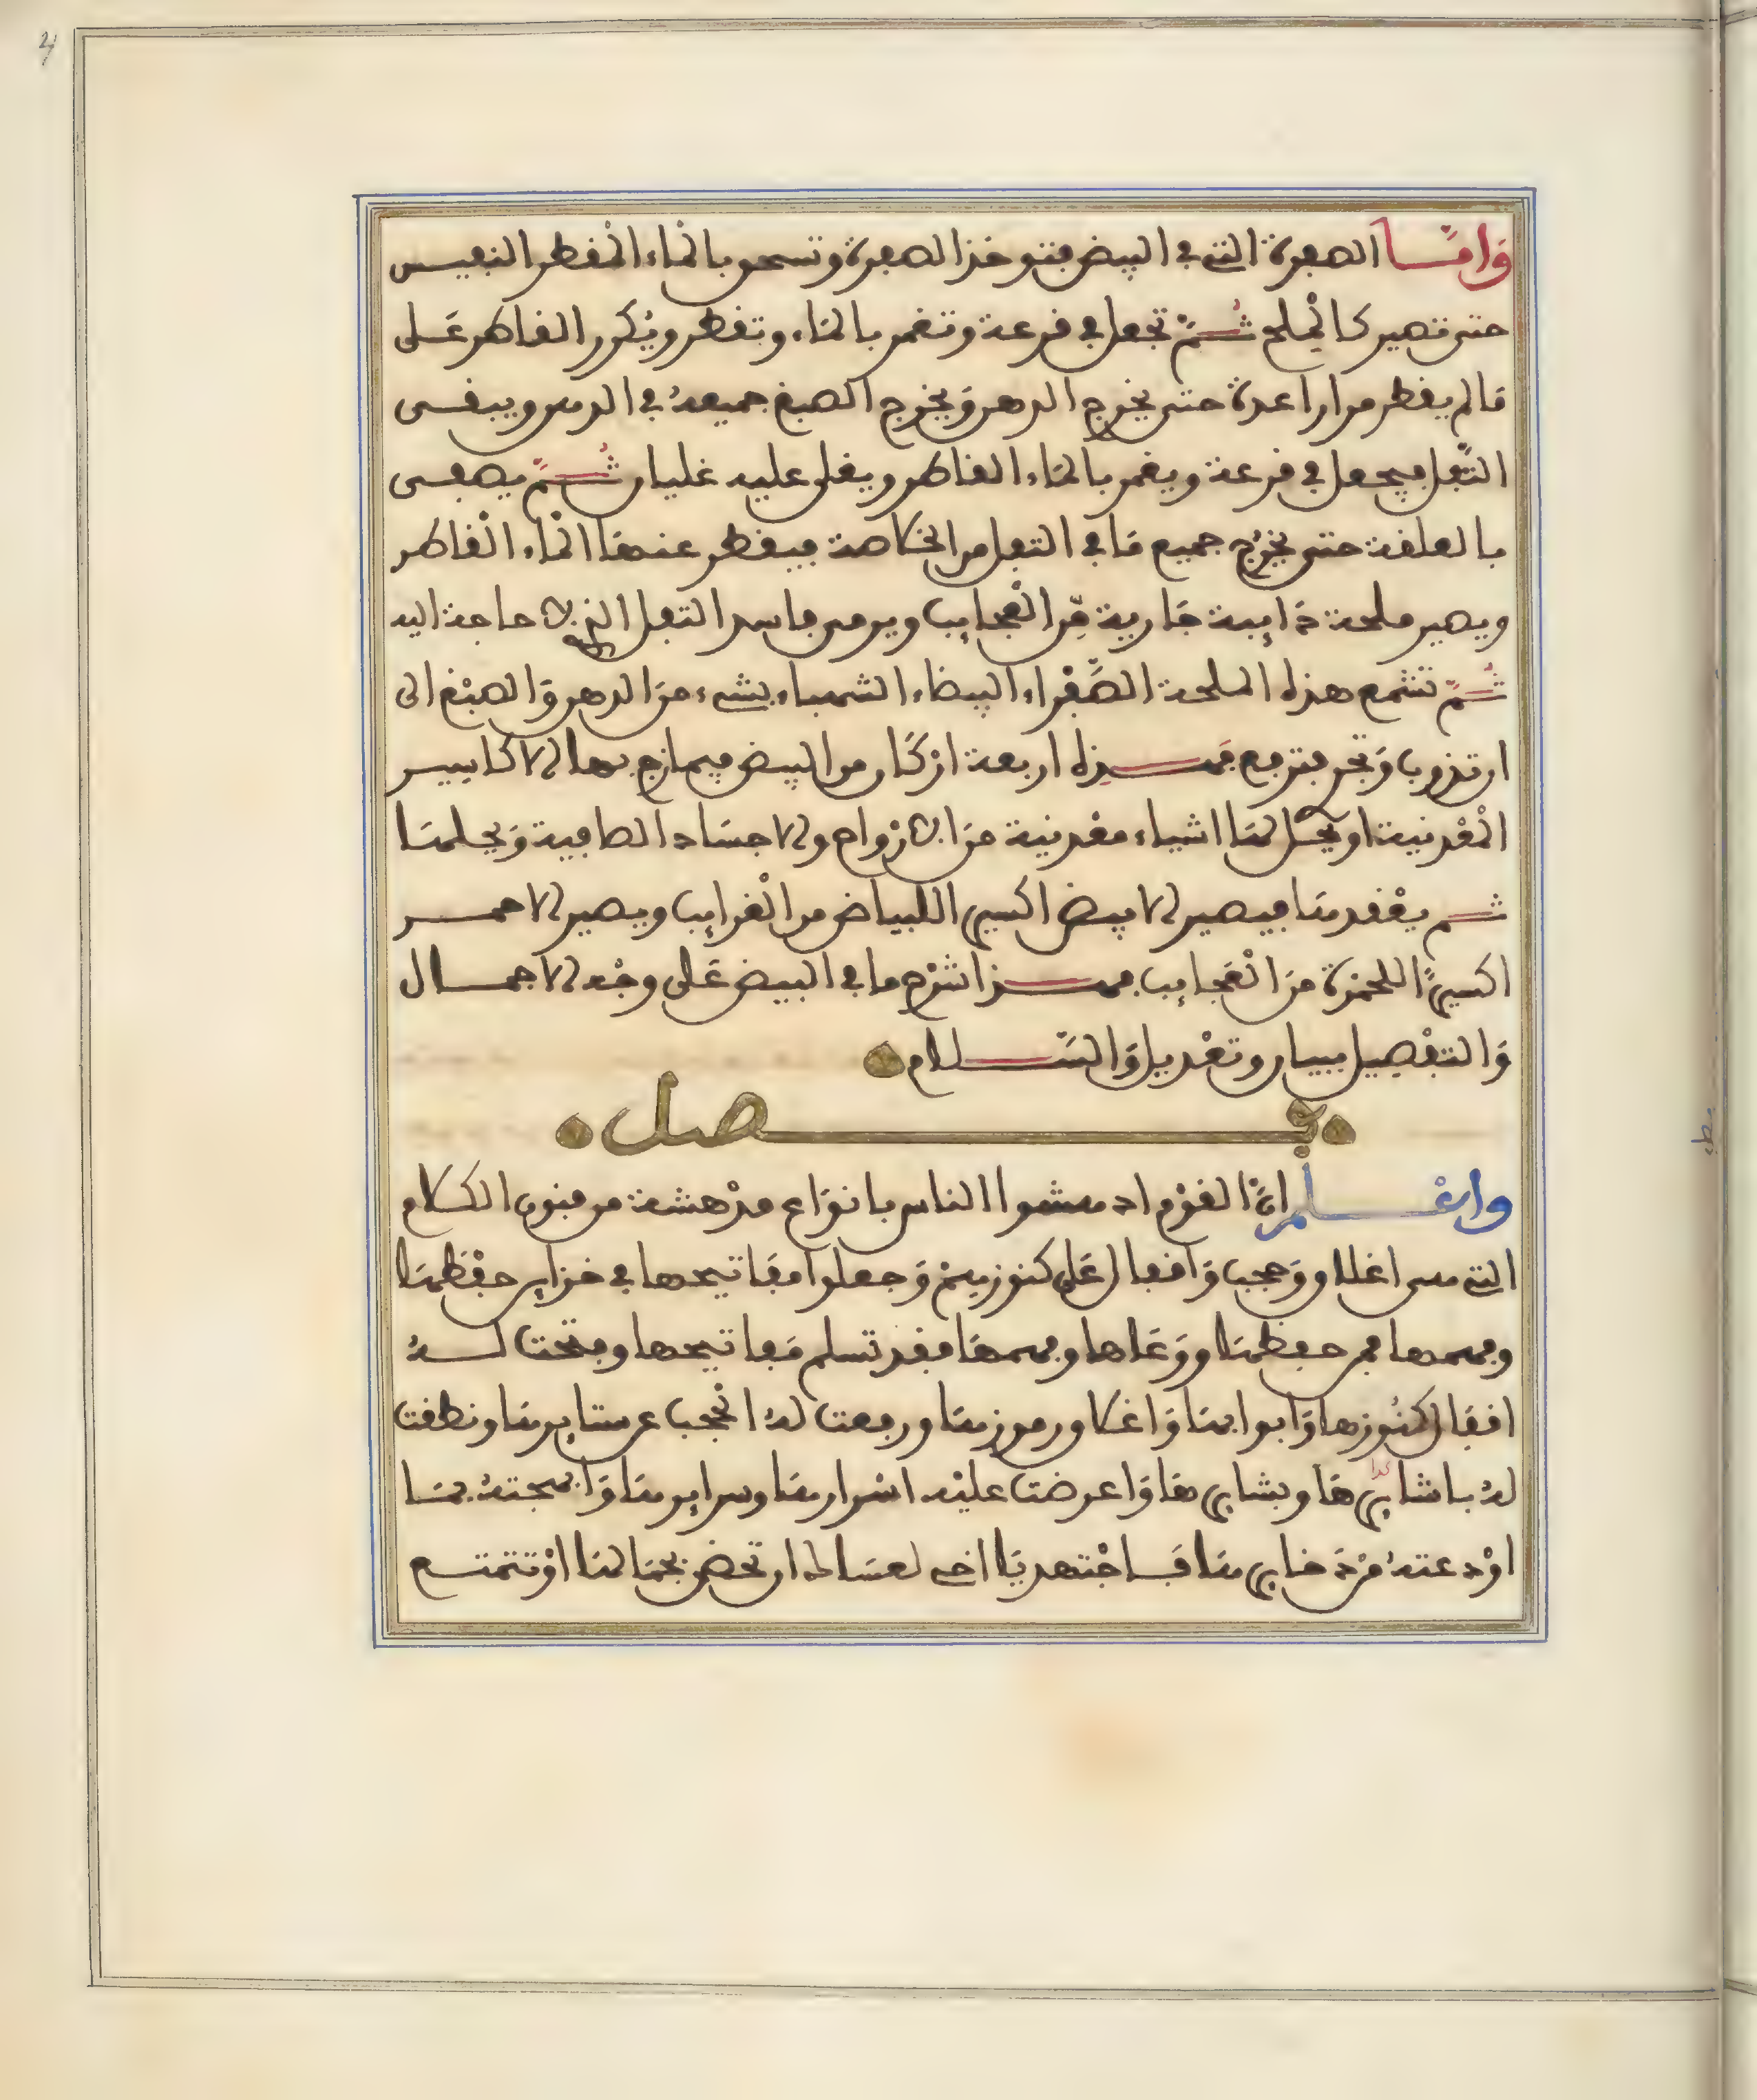 وَامَّا الصفرة التي في البيض فتوخذ الصفرة وتسحق بالماء المقطر النفيس
حتى تصير كالملح ثُمَّ تجعل في قرعة وتغمر بالماء وتقطر ويُكرر القاطر عَلى
مَا لم يقطر مرارا عدة حتى يخرج الدهن وَيخرج الصبغ جميعهُ في الدهن ويبقى
الثُّفل فيجعل في قرعة ويغمر بالماء القاطر ويغلى عليه غليان ثُمَّ يصفى
بالعلقة حتى يخرُج جميع مَا في الثفل من الخلاصة فيقطر عنهَا الْماء الْقاطر
ويصير ملحة ذَايبة جَارية مِّن الْعجايب ويرمى فاسد الثفل الذي لا حاجة اليه
ثُمَّ تشمع هذه الملحة الصَّفْراء البيضاء الشهباء بشيء منَ الدهن وَالصبْغ الى
ان تذوب وَتجري بترفع فهذه اربعة ارْكَان من البيض فيمازج بها الاكاسير
الْمعْدنية او يُحَل لهَا اشياء معْدنية منَ الارْواح والاجسَاد الصافية وَيحلهَا
ثم يعْقدهَا فيصير الابيض اكسير اللبياض من الْغرايب ويصير الاحمر
اكسيرًا للحمْرة منَ الْعَجايب فهذا شرْح ما في البيض عَلى وجْه الاجمال
وَالتفْصِيل ببيان وتعْديل وَالسَّلام
فصل
واعْلم انَّ القوْم ادهشوا الناس بانوَاع مدْهشة من فنون الكلام
التي هي اغلاق وَحجب وَاقفال عَلى كنوزهِمْ وَجعلوا مفَاتيحها في خزاين حفْظهَا
وفهمها فمن حفظهَا ووَعَاها وفهمهَا فقد تسلم مَفاتيحها وفتحت لهُ
اقفال كنُوزها وَابوابهَا وَاغلاق رموزهَا ورفعت لهُ الْحجب عن ستايرهَا ونطقت
لهُ باشايرهَا وبشايرهَا وَاعرضت عليْه اسْرارهَا وسرايرهَا وَابهجتهُ بمَا
اوْدعتهُ منْ ذخايرهَا فَاجْتهد يَا اخي لعسَاك ان تحضى بجمَالهَا اوْ تتمتع